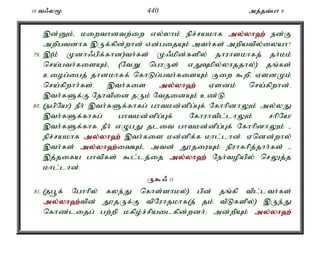 10 வ﻿ஃலமூ 440 அத்தவ்பா 9
இன்னும், மறைவானவற்றை எல்லாம் நிச்சயமாக அல்லாஹ் நன்கு
அறிபவனாக இருக்கின்றான் என்பதையும் அவர்கள் அறியவில்லையா?
79. இ(ம் முனாஃபிக்கான)வர்கள் முஃமின்களில் தாராளமாகத் தர்மம்
செய்பவர்களையும், (வேறு பொருள் எதுவுமில்லாததால்) தங்கள்
உழைப்பைத் தானமாகக் கொடுப்பவர்களையும் குறை கூறி, ஏளனமும்
செய்கிறார்கள். இவர்களை அல்லாஹ் ஏளனம் செய்கிறான்.
இவர்களுக்கு நோவினை தரும் வேதனையும் உண்டு.
80. (நபியே!) நீர் இவர்களுக்காகப் பாவமன்னிப்புக் கோரினாலும் அல்லது
இவர்களுக்காகப் பாவமன்னிப்புக் கோராவிட்டாலும் சரியே!
இவர்களுக்காக நீர் எழுபது தடவை பாவமன்னிப்புக் கோரினாலும் -
நிச்சயமாக அல்லாஹ் இவர்களை மன்னிக்க மாட்டான். ஏனென்றால்
இவர்கள் அல்லாஹ்வையும், அவன் தூதரையும் நிராகரித்தார்கள் -
இத்தகைய பாவிகள் கூட்டத்தை அல்லாஹ் நேர்வழியில் செலுத்த
மாட்டான்.
ருகூஃ 11
81. (தபூக் போரில் கலந்து கொள்ளாமல்) பின் தங்கி விட்டவர்கள்
அல்லாஹ்வின் தூதருக்கு விரோதமாக(த் தம் வீடுகளில்) இருந்து
கொண்டதைப் பற்றி மகிழ்ச்சியடைகின்றனர்; அன்றியும் அல்லாஹ்